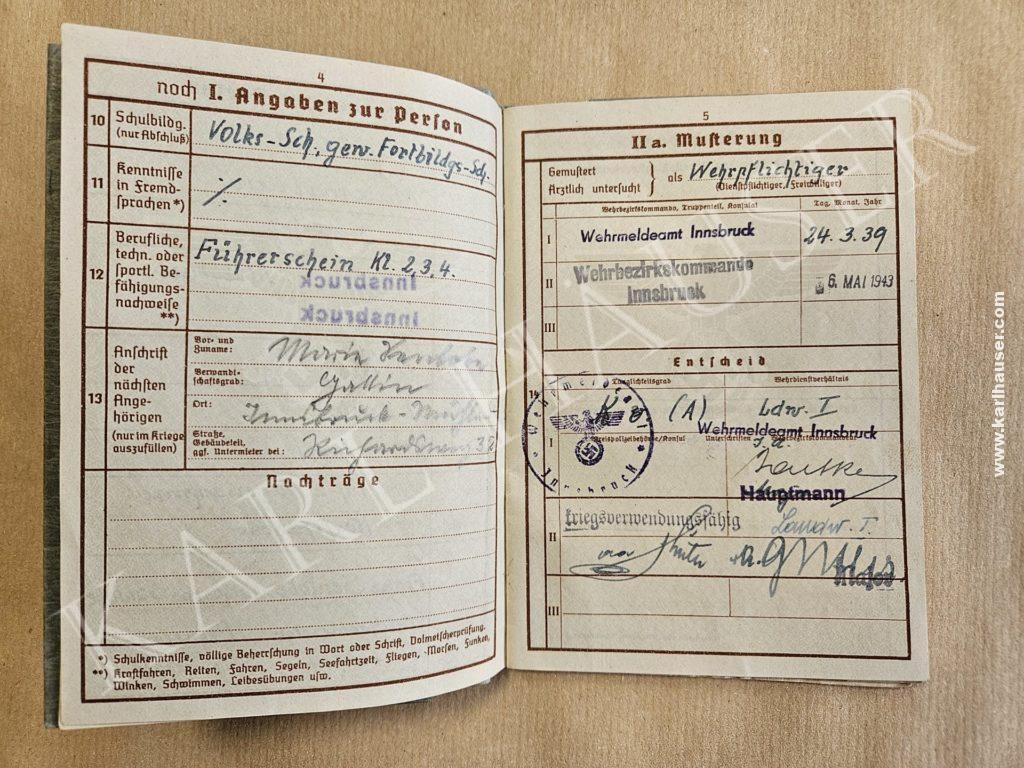 4
noch I. Angaben zur Person
10 Schulbildg. (nur Abschluß) Volks-Sch., gew. Fortbildgs-Sch.
11 Kenntnisse in Fremdsprachen*) ·/.
12 Berufliche, techn. oder sportl. Befähigungsnachweise **) Führerschein Kl. 2,3,4.
Innsbruck
Innsbruck
13 Anschrift der nächsten Angehörigen (nur im Kriege auszufüllen)
Vor- und Zuname: Maria
Verwandtschaftsgrad: Gattin
Ort: Innsbruck-
Straße, Gebäudeteil, ggf. Untermieter bei:
Nachträge
*) Schulkenntnisse, völlige Beherrschung in Wort oder Schrift, Dolmetscherprüfung.
**) Kraftfahren, Reiten, Fahren, Segeln, Seefahrtzeit, Fliegen, Morsen, Funken,
Winken, Schwimmen, Leibesübungen usw.
5
IIa. Musterung
Gemustert
Ärztlich untersucht } als Wehrpflichtiger
(Dienstpflichtiger, Freiwilliger)
Wehrbezirkskommando, Truppenteil, Konsulat Tag, Monat, Jahr
I Wehrmeldeamt Innsbruck 24. 3. 39
II Wehrbezirkskommando Innsbruck 6. MAI 1943
III
Entscheid
Tauglichkeitsgrad Wehrdienstverhältnis
14
(A) Ldw. I
Wehrmeldeamt Innsbruck
I Kreispolizeibehörde/Konsul Unterschriften
Wehrmeldeamt Innsbruck
Hauptmann
II kriegsverwendungsfähig Landw. I.
Major
III
KARL HÄUSER
www.karlhauser.com